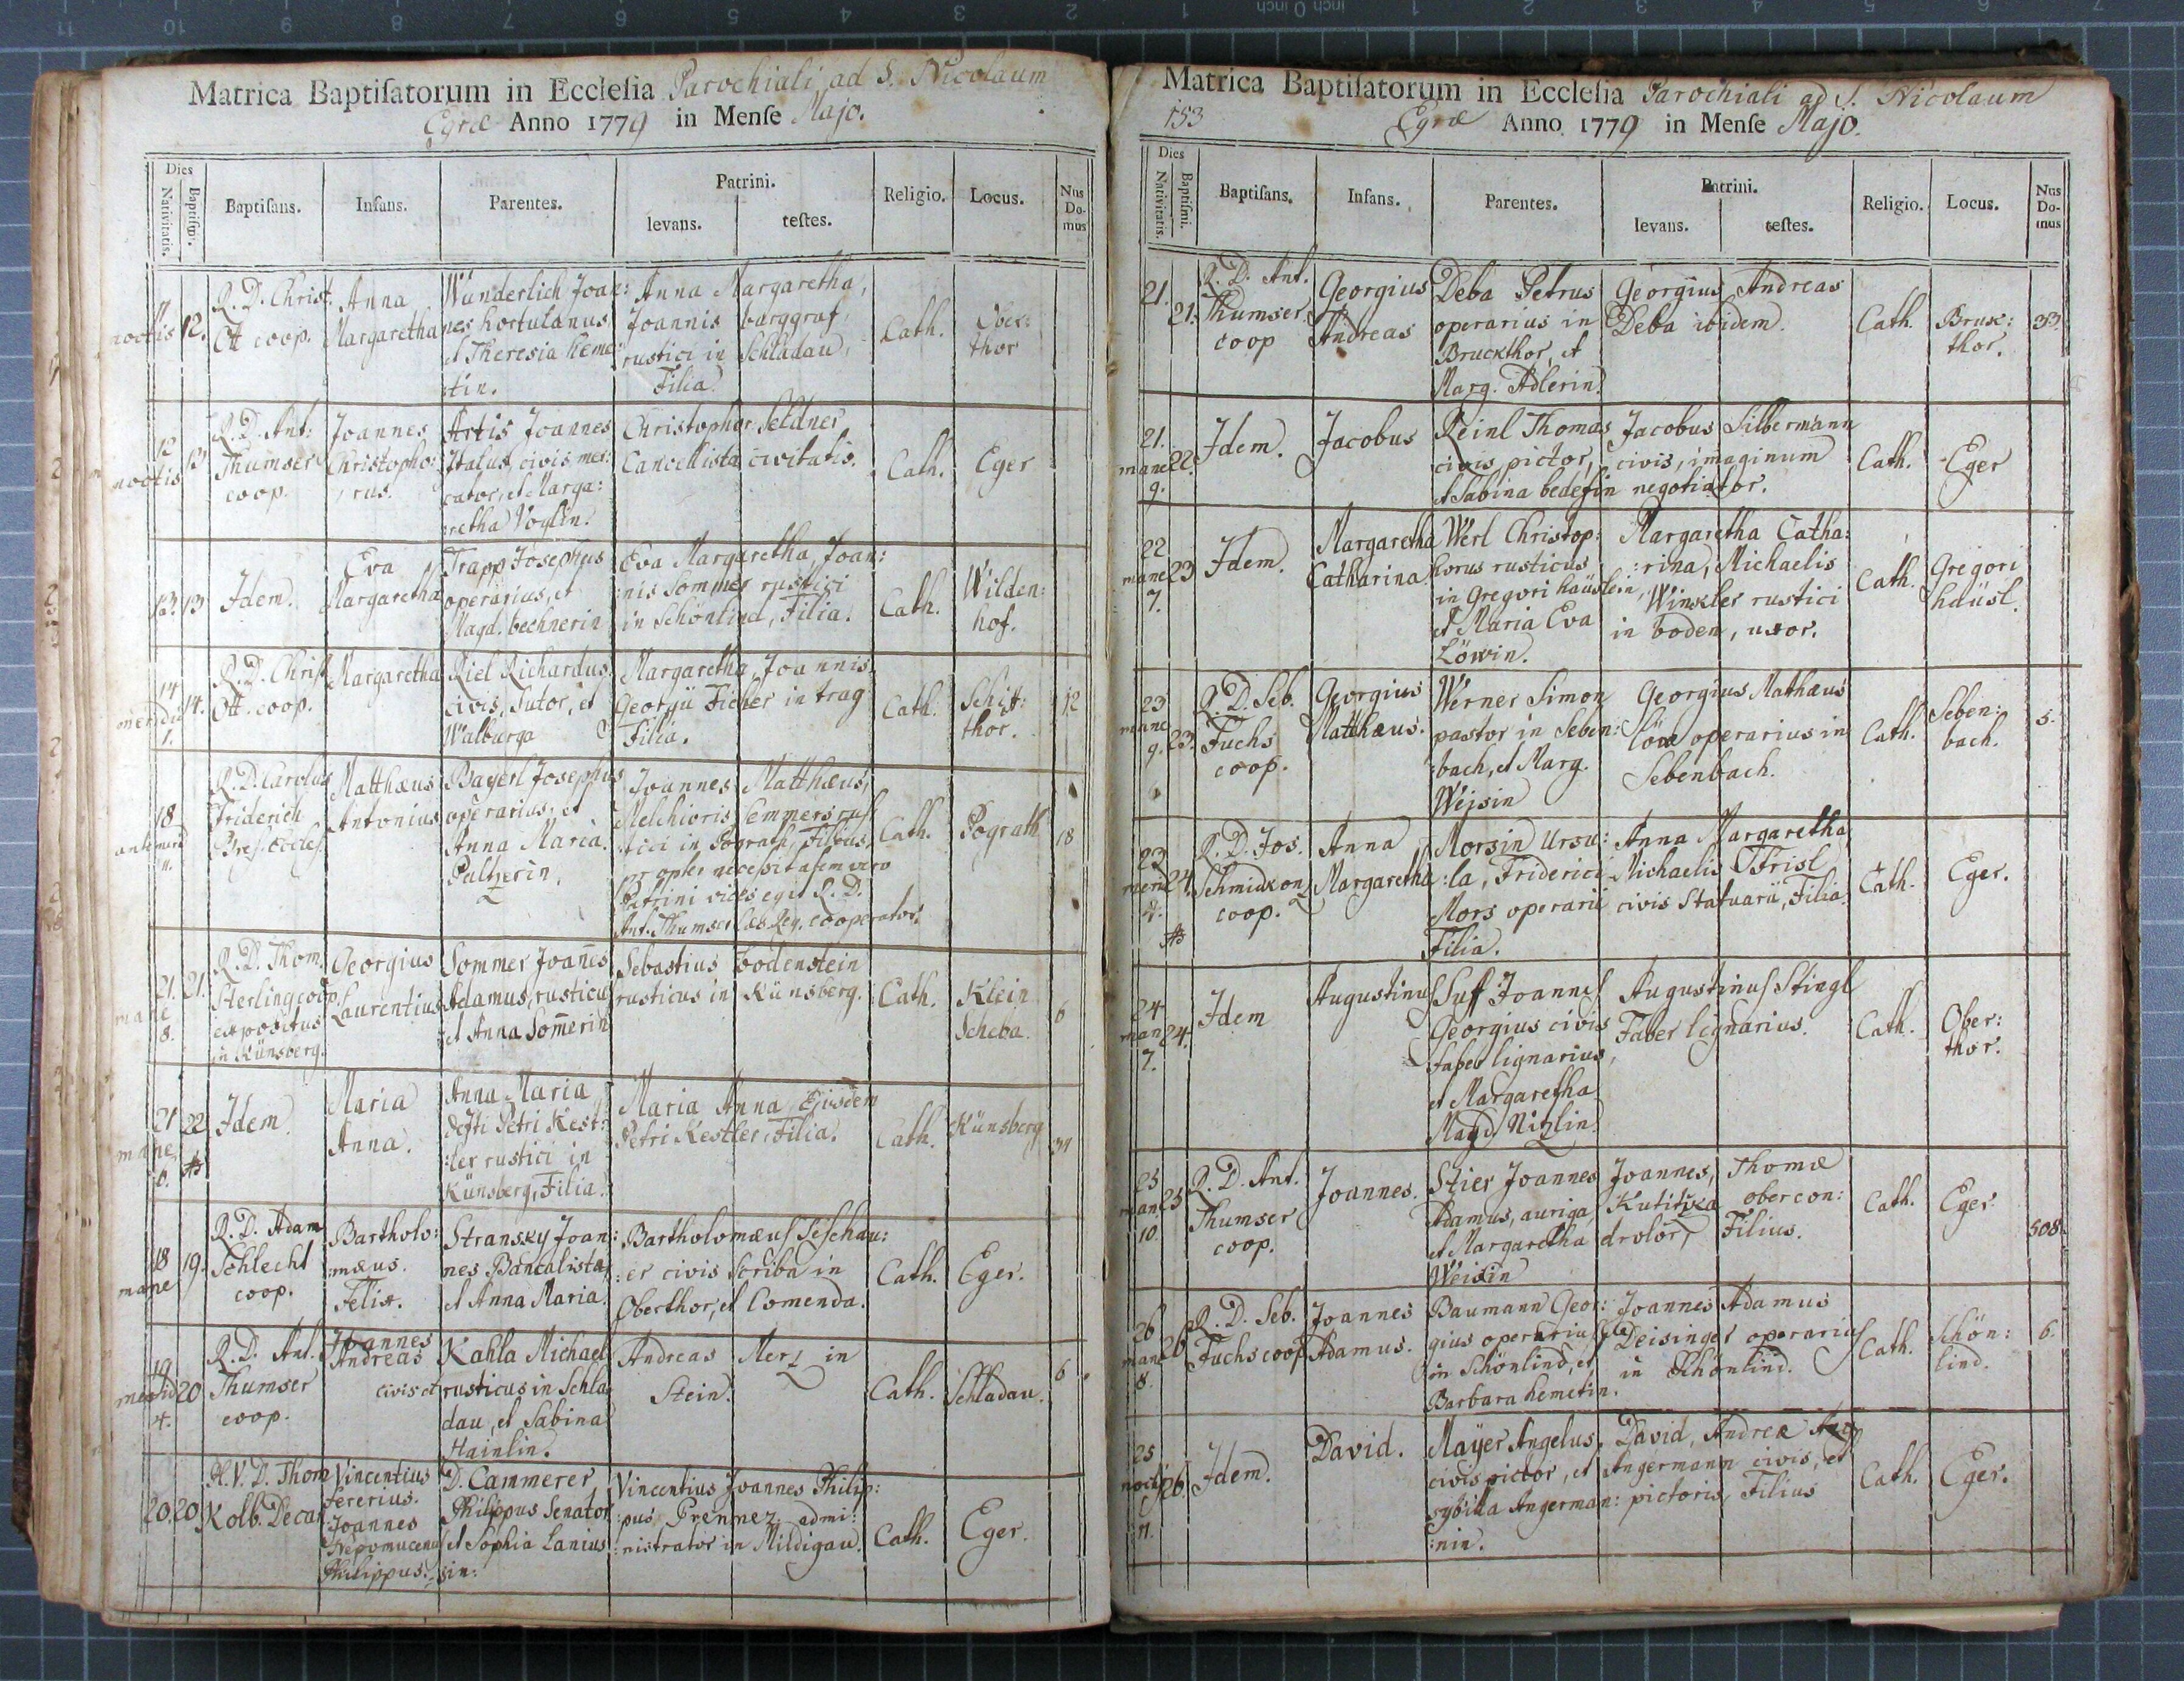 Matrica Baptisatorum in Ecclesia Parochiali ad S. Nicolaum
Egræ Anno 1779 in Mense Majo.
Dies
Nativitatis.
Baptismi.
Baptisans.
Infans.
Parentes.
Patrini.
levans.
testes.
Religio.
Locus.
Nus
Do-
mus
noctis
12.
R. D. Christ.
Ott coop.
Anna
Margaretha
Wunderlich Joan:
nes hortulanus
et Theresia heme:
:tin.
Anna Margaretha,
Joannis burggraf
rustici in Schladau,
Filia.
Cath.
Ober:
thor
12
noctis
13
R. D. Ant:
Thumser
coop.
Joannes
Christopho:
rus.
Artis Joannes
civis mer:
cator, et Marga:
:retha Voglin.
Christophor Seldner
Cancellista civitatis.
Cath.
Eger
13.
13
Idem.
Eva
Margaretha
Trapp Josephus
operarius, et
Magd. bechnerin
Eva Margaretha Joan:
:nis Sommer rustici
in Schönlind, Filia.
Cath.
Wilden:
hof.
14
1.
14.
R. D. Christ
Ott. coop.
Margaretha
Riel Richardus
civis, Sutor, et
Walburga
Margaretha, Joannis
Georgii Ficher in trag
Filia.
Cath.
Schift:
thor.
12
18
11.
R. D. Carolus
Friderich
Matthæus
Antonius
Bayerl Josephus
operarius, et
Anna Maria
Pultzerin,
Joannes Matthæus,
Melchioris Semmers rus
:tici in Pograth, Filius,
propter necessitatem vero
Patrini vices egit R. D.
Ant. Thumser cooperator.
Cath.
Pograth
18
21.
mane
8.
21.
R. D. Thom.
Sterling coop.
expositus
in Künsberg.
Georgius
Laurentius
Sommer Joañes
Adamus, rusticus
et Anna Som̃erin
Sebastius bodenstein
rusticus in Künsberg.
Cath.
Klein
Scheba.
6
21
mane
22
Idem
Maria
Anna.
Anna Maria
Petri Kest:
:ler rustici in
Künsberg, Filia.
Maria Anna Ejusdem
Petri Kestler, Filia.
Cath.
Künsberg
31
18
mane
19.
R. D. Adam
Schlecht
coop.
Bartholo:
mæus.
Felix.
Stransky Joan:
nes Bancalista,
et Anna Maria.
Bartholomæus Seschau:
:er civis Scriba in
Oberthor, et Comenda.
Cath.
Eger.
19
4.
20
R. D. Ant.
Thumser
coop.
Joannes
Andreas
civis et
Kahla Michael
rusticus in Schla
dau, et Sabina
Hainlin.
Andreas Merz in
Stein.
Cath.
Schladau.
6
20.
20
Thom
Kolb. Decan
Vincentius
fererius.
Joannes
Nepomucenus
Philippus.
D. Cammerer
Philippus Senator
et Sophia Lanius
sin:
Vincentius Joannes Philip:
:pus, Prennez admi:
:nistrator in Mildigau.
Cath.
Eger.
Matrica Baptisatorum in Ecclesia Parochiali ad S. Nicolaum
153
Egræ Anno 1779 in Mense Majo.
Dies
Nativitatis.
Baptismi.
Baptisans.
Infans.
Parentes.
Patrini.
levans.
testes.
Religio.
Locus.
Nus
Do-
mus
21.
21.
R. D. Ant.
Thumser
coop
Georgius
Andreas
Deba Petrus
operarius in
Bruckthor, et
Marg. Adlerin.
Georgius Andreas
Deba ibidem.
Cath.
Bruk:
thor.
33.
21.
mane
9.
22.
Idem.
Jacobus
Reinl Thomas
civis, pictor,
et Sabina bedefin
Jacobus Silbermann
civis, imaginum
negotiator.
Cath.
Eger
22
mane
7.
23
Idem.
Margaretha
Catharina
Werl Christop:
horus rusticus
in Gregori häuslein,
et Maria Eva
Löwin.
Margaretha Catha:
:rina, Michaelis
Winkler rustici
in boden, uxor.
Cath.
Gregori
häusl.
23
mane
9.
23.
R. D. Seb.
Fuchs
coop.
Georgius
Matthæus.
Werner Simon
pastor in Seben:
:bach, et Marg.
Weisin
Georgius Mathæus
löw operarius in
Sebenbach.
Cath.
Seben:
bach.
5.
23
4.
24.
R. D. Jos.
Schmidkonz
coop.
Anna
Margaretha
Morsin Ursu:
:la, Friderici
Mors operarii
Filia.
Anna Margaretha
Michaelis Frisl
civis Statuarii, Filia.
Cath.
Eger.
24
man
7.
24.
Idem
Augustinus
Suff Joannes
Georgius civis
faber lignarius,
et Margaretha
Magd. Nizlin.
Augustinus Stingl
Faber lignarius.
Cath.
Ober:
thor.
25
mane
10.
25
R. D. Ant.
Thumser
coop.
Joannes.
Stier Joannes
Adamus, auriga,
et Margaretha
Weisin
Joannes, Thomæ
Kutitska obercon:
drolor, Filius.
Cath.
Eger
508.
26
mane
8.
26
R. D. Seb.
Fuchs coop.
Joannes
Adamus.
Baumann Geor:
gius operarius
in Schönlind, et
Barbara hemetin.
Joannes Adamus
Deisinger operarius
in Schönlind.
Cath.
Schön:
lind.
6.
25
noctis
11.
26.
Idem.
David.
Mayer Angelus,
civis pictor, et
sybilla Angerman:
:nin.
David, Andreæ
Angermann civis, et
pictoris, Filius
Cath.
Eger.